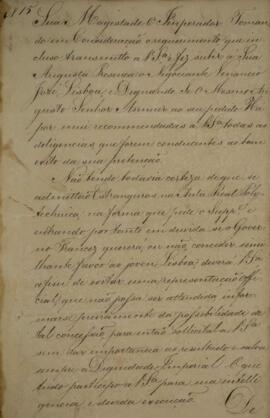 Sua Magestade O Imperador Toman
do em Consideração o requerimento que in
cluso transmitto a VSª e fez subir á Sua
Augusta Presença o Negociante Venancio
José Lisboa, e Dignando-Se O Mesmo
gusto Senhor Annuir ao seu pedido Há
por mui recommendadas a VSª todas as
diligencias que forem conducentes ao bom
exito da sua pretenção.
Não tendo todavia certeza de que se
admittão Estrangeiros na Aula Real Poly
technica, na forma que pede o Suppe. e
entrando por tanto em duvida se o Gover
no Francez quererá, ou não, conceder seme
lhante favor ao joven Lisboa, deverá VSª
afim de evitar uma representação offi
cial, que não possa ser attendida infor
marse previamente da possibilidade de
tal concessão, para então sollicital-a VSª
sem dar importancia ao resultado e salva
sempre a Dignidade Imperial. O que
tudo participo a VSª para sua intelli
gencia e devida execução.
De